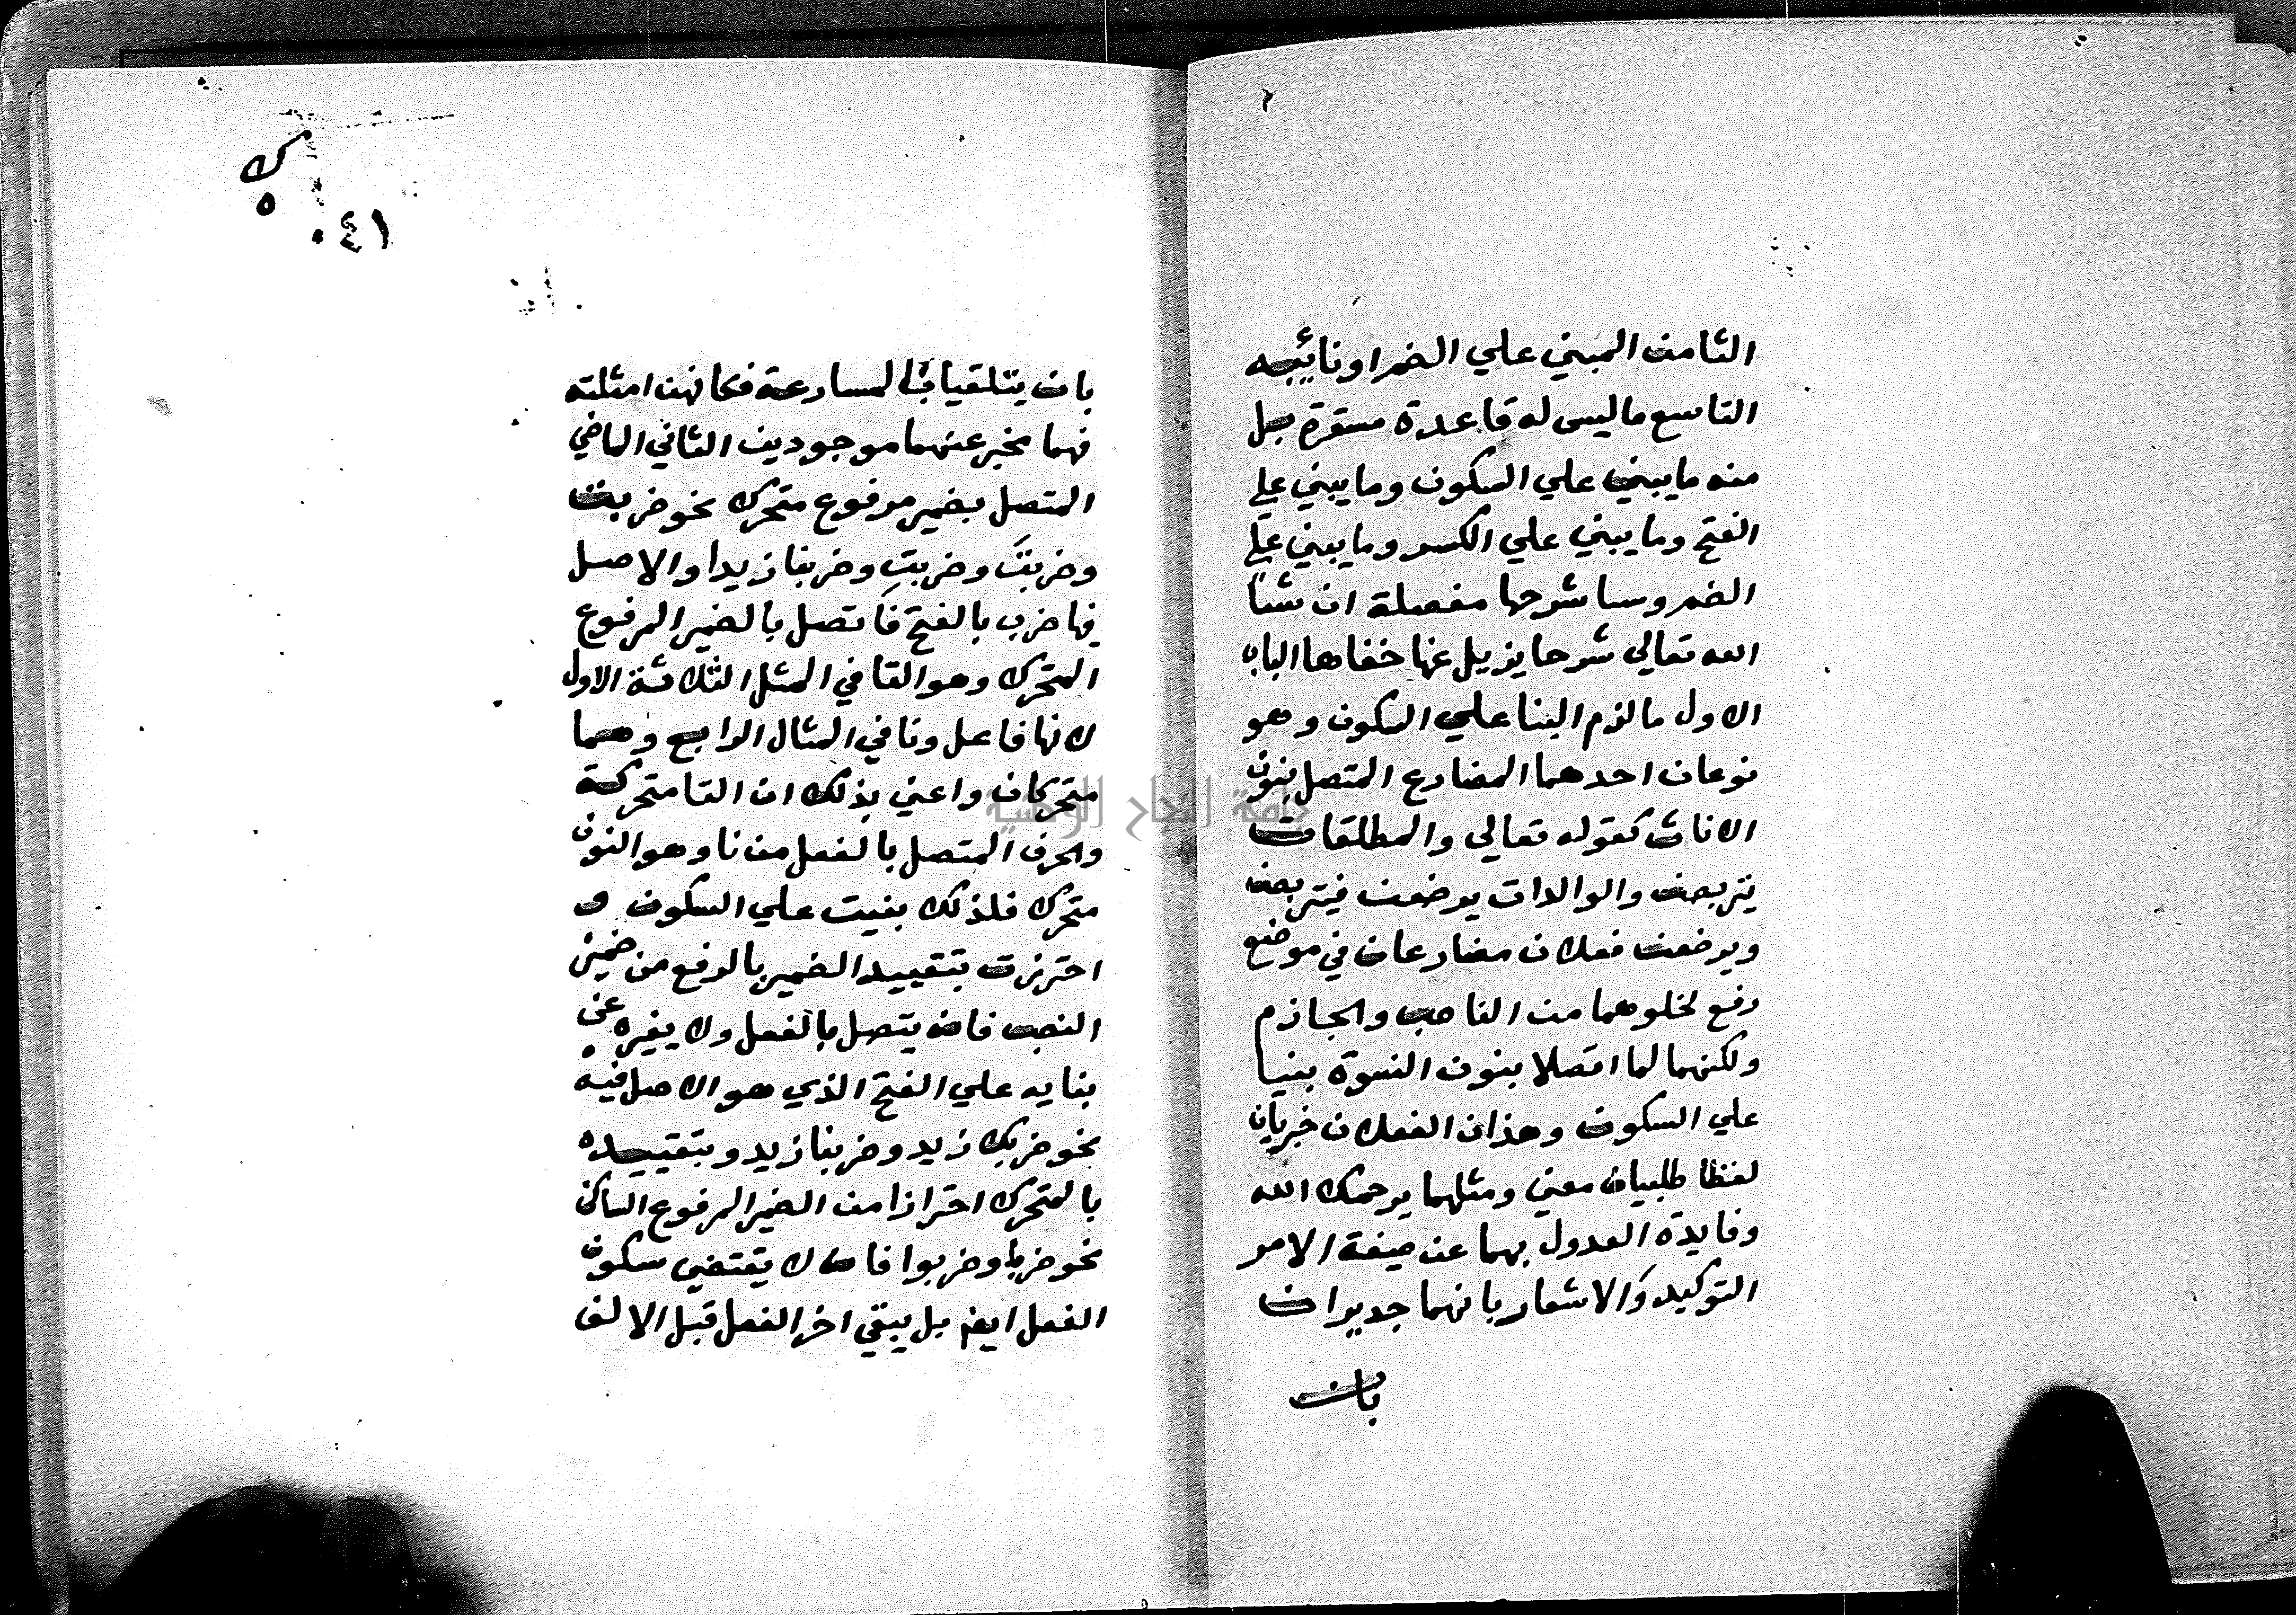 الثامن المبني علي الضم او نائيبه
التاسع ما ليس له قاعدة مستقرة بل
منه ما يبني علي السكون وما يبني علي
الفتح وما يبني علي الكسر وما يبني علي
الضم وساشرحها مفصلة ان شا
الله تعالي شرحا يزيل عنها خفاها الباب
الاول ما لزم البنا علي السكون وهو
نوعان احدهما المضارع المتصل بنون
الاناث كقوله تعالي والمطلقات
يتربصن والوالدات يرضعن فيتربصن
ويرضعن فعلان مضارعان في موضع
رفع لخلوهما من الناصب والجازم
ولكنهما لما اتصلا بنون النسوة بنيا
علي السكون وهذان الفعلان خبريان
لفظا طلبيان معني ومثلهما يرحمك الله
وفايدة العدول بهما عن صيغة الامر
التوكيد والاشعار بانهما جديران
بان
ك
٥
٠٤١
بان يتلقيا بالمسارعة فكانهن امثلته
فهما مخبر عنهما موجودين الثاني الماضي
المتصل بضمير مرفوع متحرك نحو ضربت
وضربتَ وضربتِ وضربنا زيدا والاصل
فيها ضرب بالفتح فاتصل بالضمير المرفوع
المتحرك وهو التا في المثل الثلاثة الاول
لانها فاعل ونا في المثال الرابع وهما
متحركان واعني بذلك ان التا متحركة
والحرف المتصل بالفعل من نا وهو النون
متحرك فلذلك بنيت علي السكون و
احترزت بتقييد الضمير بالرفع من ضمير
النصب فانه يتصل بالفعل ولا يغيره عن
بنايه علي الفتح الذي هو الاصل فيه
نحو ضربك زيد وضربنا زيد وبتقييده
بالمتحرك احترازا من الضمير المرفوع الساكن
نحو ضربا وضربوا فانه لا يقتضي سكون
الفعل ايضا بل يبقي اخر الفعل قبل الالف
جامعة النجاح الوطنية